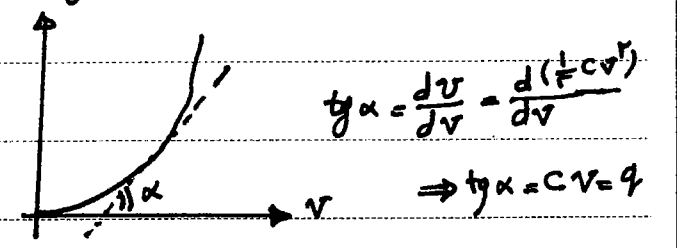 tgα = dU/dV = d(½CV²)/dV
α
V
⇒ tgα = CV = q